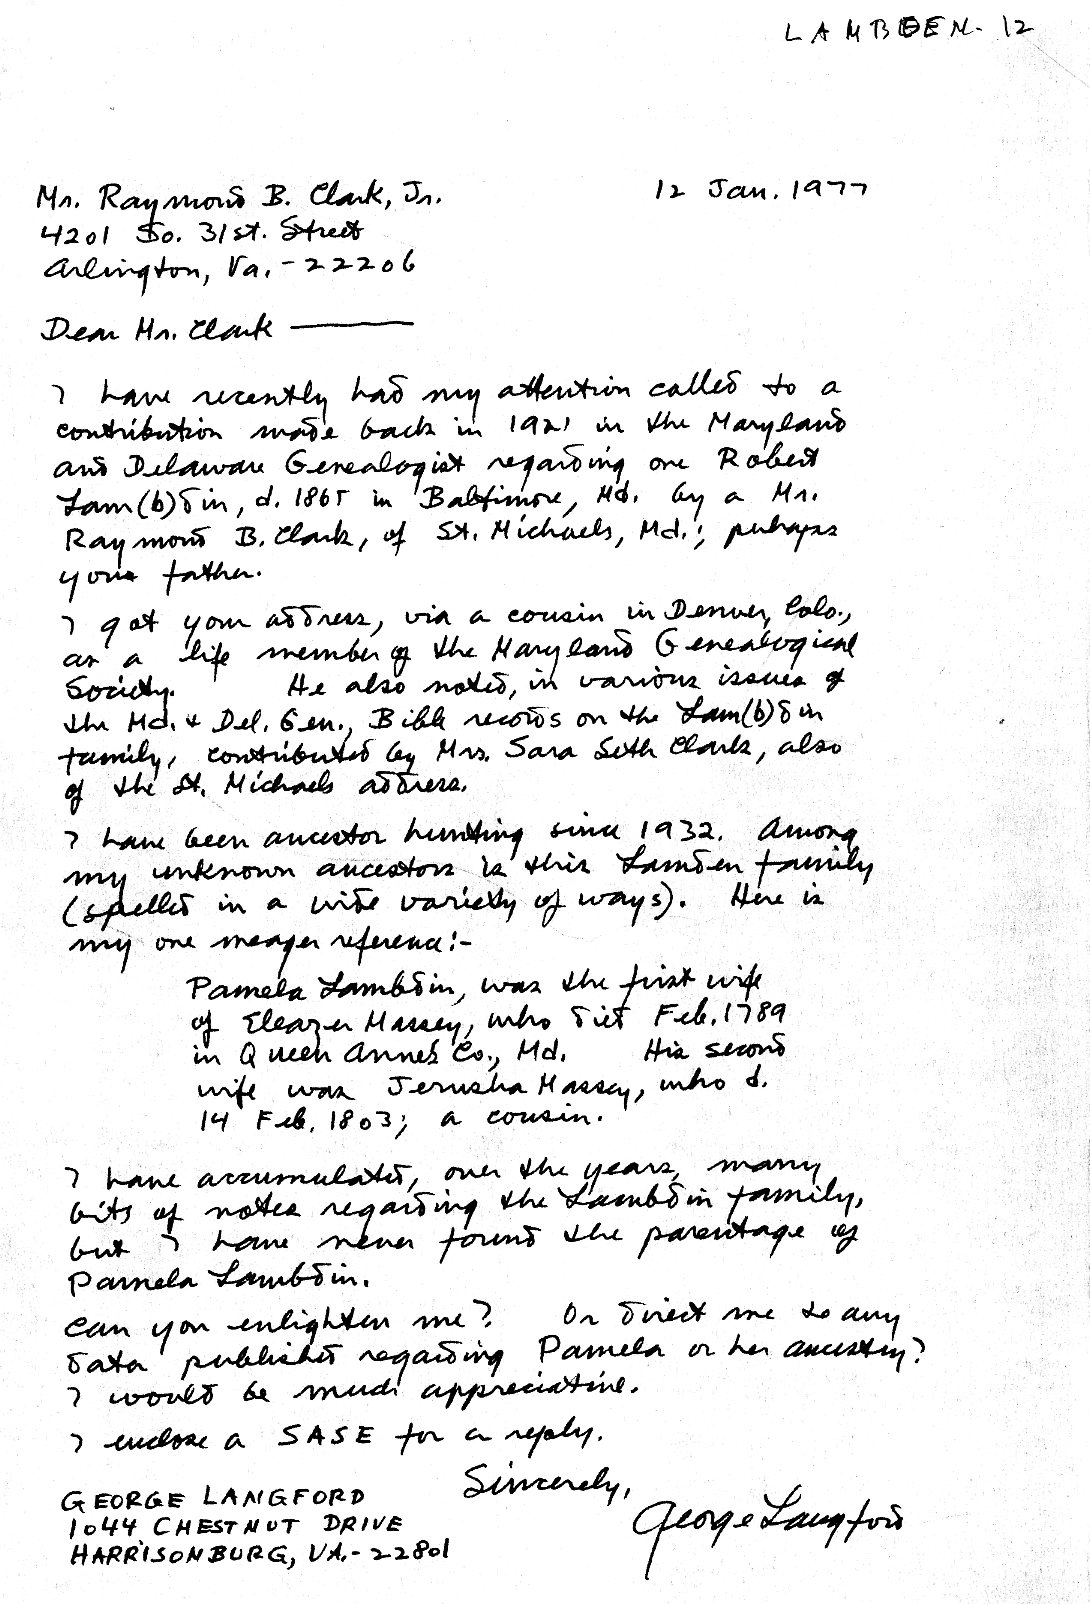 LAMBDEN-12
12 Jan. 1977
Mr. Raymond B. Clark, Jr.
4201 So. 31st. Street
Arlington, Va. - 22206
Dear Mr. Clark —
I have recently had my attention called to a
contribution made back in 1921 in the Maryland
and Delaware Genealogist regarding one Robert
Lam(b)din, d. 1865 in Baltimore, Md. by a Mr.
Raymond B. Clark, of St. Michaels, Md.; perhaps
your father.
I got your address, via a cousin in Denver, Colo.,
as a life member of the Maryland Genealogical
Society. He also noted, in various issues of
the Md. & Del. Gen., Bible records on the Lam(b)din
family, contributed by Mrs. Sara Seth Clark, also
of the St. Michaels address.
I have been ancestor hunting since 1932. Among
my unknown ancestors is this Lamden family
(spelled in a wide variety of ways). Here is
my one meager reference:-
Pamela Lambdin, was the first wife
of Eleazer Massey, who died Feb. 1789
in Queen Anne's Co., Md. His second
wife was Jerusha Massey, who d.
14 Feb. 1803; a cousin.
I have accumulated, over the years, many
bits of notes regarding the Lambdin family,
but I have never found the parentage of
Pamela Lambdin.
Can you enlighten me? Or direct me to any
data published regarding Pamela or her ancestry?
I would be much appreciative.
I enclose a SASE for a reply.
Sincerely,
George Langford
GEORGE LANGFORD
1044 CHESTNUT DRIVE
HARRISONBURG, VA. - 22801